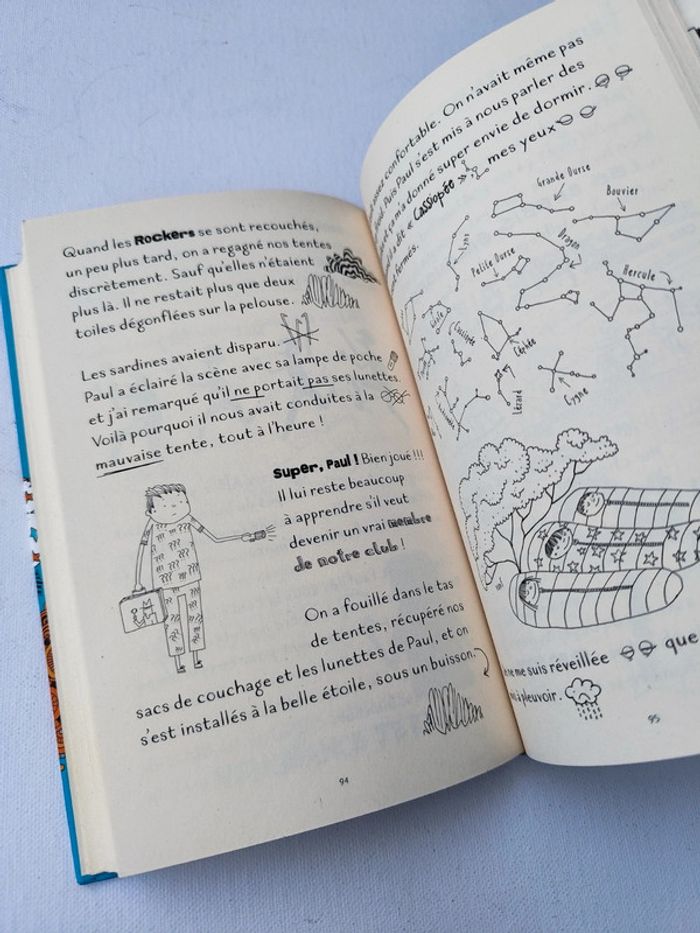 Quand les Rockers se sont recouchés,
un peu plus tard, on a regagné nos tentes
discrètement. Sauf qu'elles n'étaient
plus là. Il ne restait plus que deux
toiles dégonflées sur la pelouse.
Les sardines avaient disparu.
Paul a éclairé la scène avec sa lampe de poche
et j'ai remarqué qu'il ne portait pas ses lunettes.
Voilà pourquoi il nous avait conduites à la
mauvaise tente, tout à l'heure !
Super, Paul ! Bien joué !!!
Il lui reste beaucoup
à apprendre s'il veut
devenir un vrai membre
de notre club !
On a fouillé dans le tas
de tentes, récupéré nos
sacs de couchage et les lunettes de Paul, et on
s'est installés à la belle étoile, sous un buisson.
94
confortable. On n'avait même pas
Puis Paul s'est mis à nous parler des
m'a donné super envie de dormir.
dit « Cassiopée », mes yeux
fermés.
Grande Ourse
Bouvier
Lynx
Dragon
Petite Ourse
Hercule
Cassiopée
Céphée
Lézard
Cygne
ne me suis réveillée que
à pleuvoir.
95